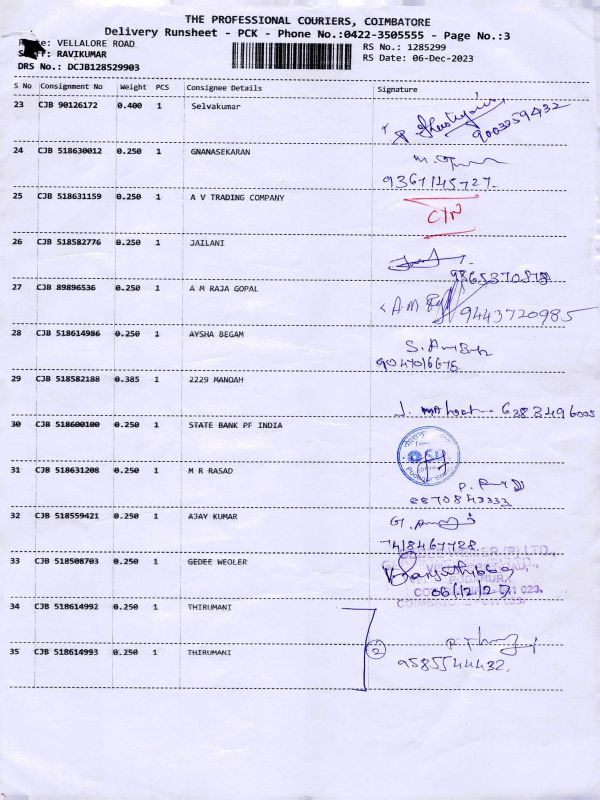 THE PROFESSIONAL COURIERS, COIMBATORE
Delivery Runsheet - PCK - Phone No.:0422-3505555 - Page No.:3
VELLALORE ROAD RS No.: 1285299
RAVIKUMAR RS Date: 06-Dec-2023
DRS No.: DCJB128529903
S No Consignment No Weight PCS Consignee Details Signature
23 CJB 90126172 0.400 1 Selvakumar
9003259432
24 CJB 518630012 0.250 1 GNANASEKARAN
9367145727.
25 CJB 518631159 0.250 1 A V TRADING COMPANY
C/N
26 CJB 518582776 0.250 1 JAILANI
27 CJB 89896536 0.250 1 A M RAJA GOPAL
9443720985
28 CJB 518614986 0.250 1 AYSHA BEGAM
9047016675.
29 CJB 518582188 0.385 1 2229 MANOAH
6383496005
30 CJB 518600100 0.250 1 STATE BANK PF INDIA
31 CJB 518631208 0.250 1 M R RASAD
8870843333
32 CJB 518559421 0.250 1 AJAY KUMAR
7418467728
33 CJB 518508703 0.250 1 GEDEE WEOLER
34 CJB 518614992 0.250 1 THIRUMANI
2
35 CJB 518614993 0.250 1 THIRUMANI
9585544432.